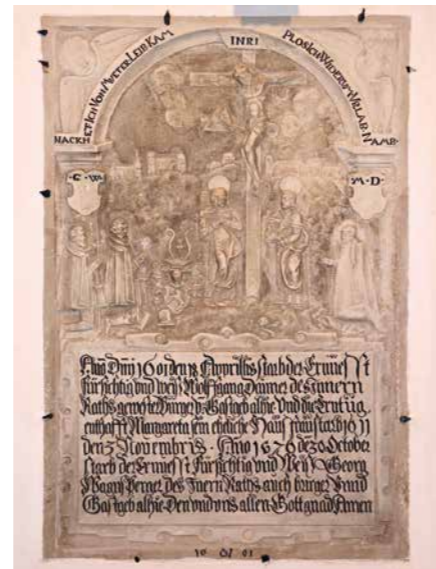 NACKHET ICH VON MVETER LEIB KAM
INRI
PLOS ICH WIDERVM
G · W
M · D ·
Año Dm̃i 1601 den Apprillis starb der Ernuesst
fürsichtig vnd weys Wolfgang des Jnnern
Raths gewester Burger Gastgeb alhie Vnd die Erntug
enthafft Margareta sein eheliche Hausfrau starb 1611
den 3 Nouembris · Año 1676 de 30 October
starb der Ernuesst Fürsichtig vnd Weys Georg
des Jnern Raths auch burger Vand
Gastgeb alhie Den vnd vns allen Gott gnad Amen
16 01